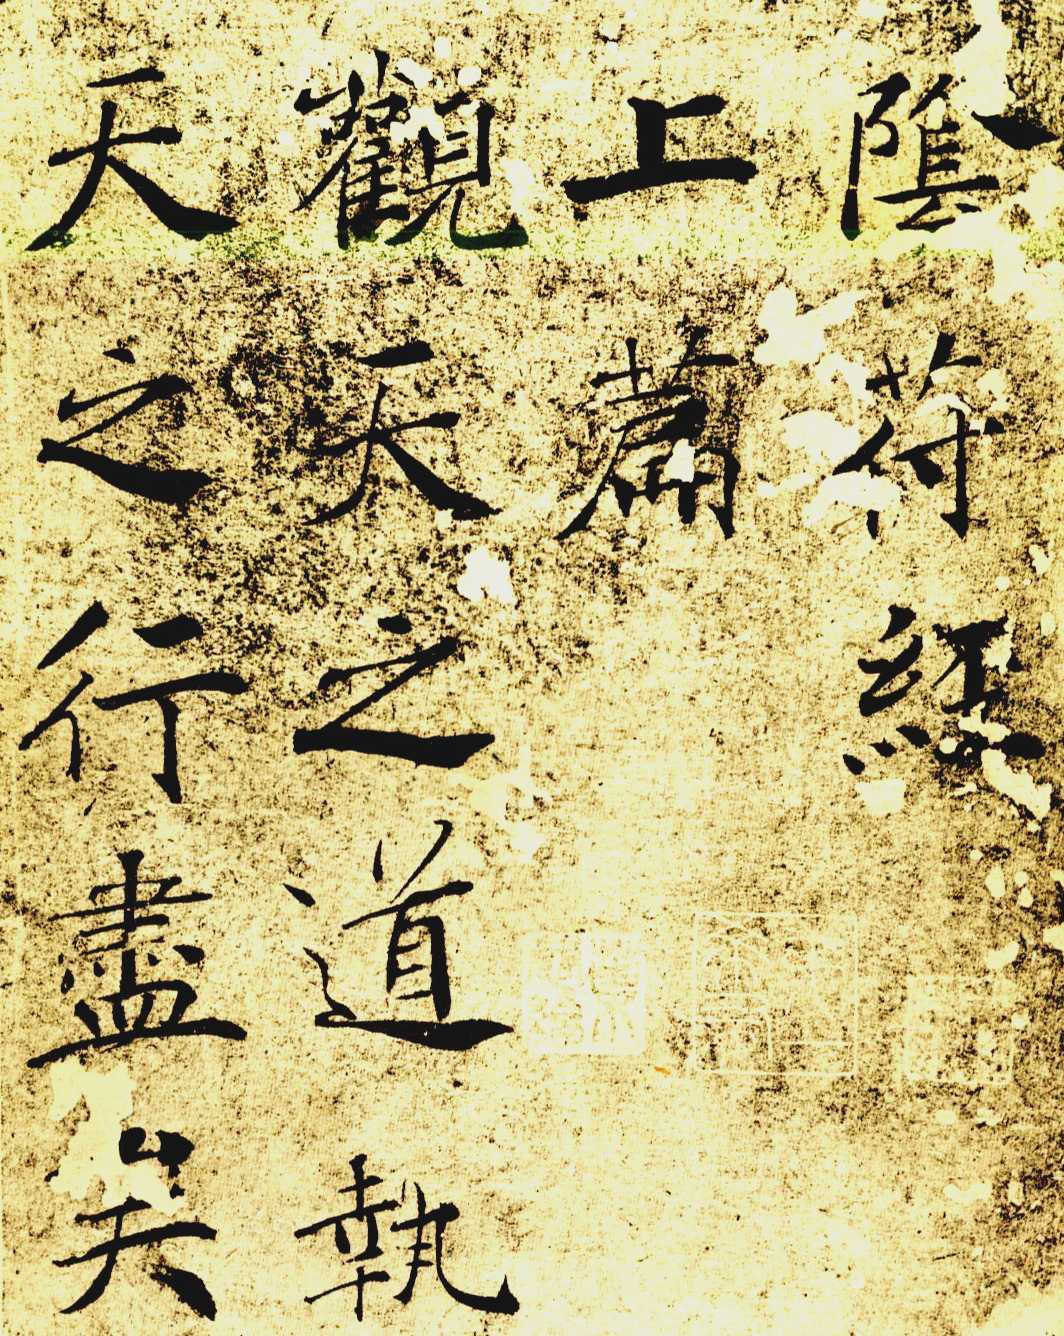 陰苻經
上萹
觀天之道執
天之行盡矣